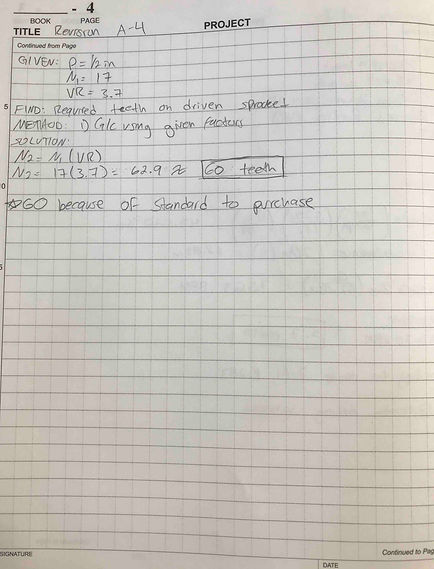 - 4
BOOK PAGE
TITLE Revision A-4 PROJECT
Continued from Page
GIVEN: P = 1/2 in
N1 = 17
VR = 3.7
5 FIND: Required teeth on driven sprocket
METHOD: 1) Calc using given factors
SOLUTION:
N2 = N1 (VR)
N2 = 17(3.7) = 62.9 ≈ 60 teeth
☆60 because of standard to purchase
SIGNATURE
DATE
Continued to Pag